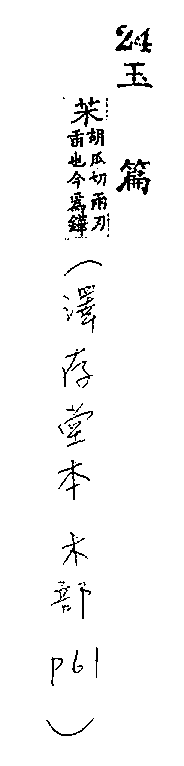 24
玉篇
茉
胡瓜切兩刃
臿也今爲鏵
(澤存堂本 木部 P61)